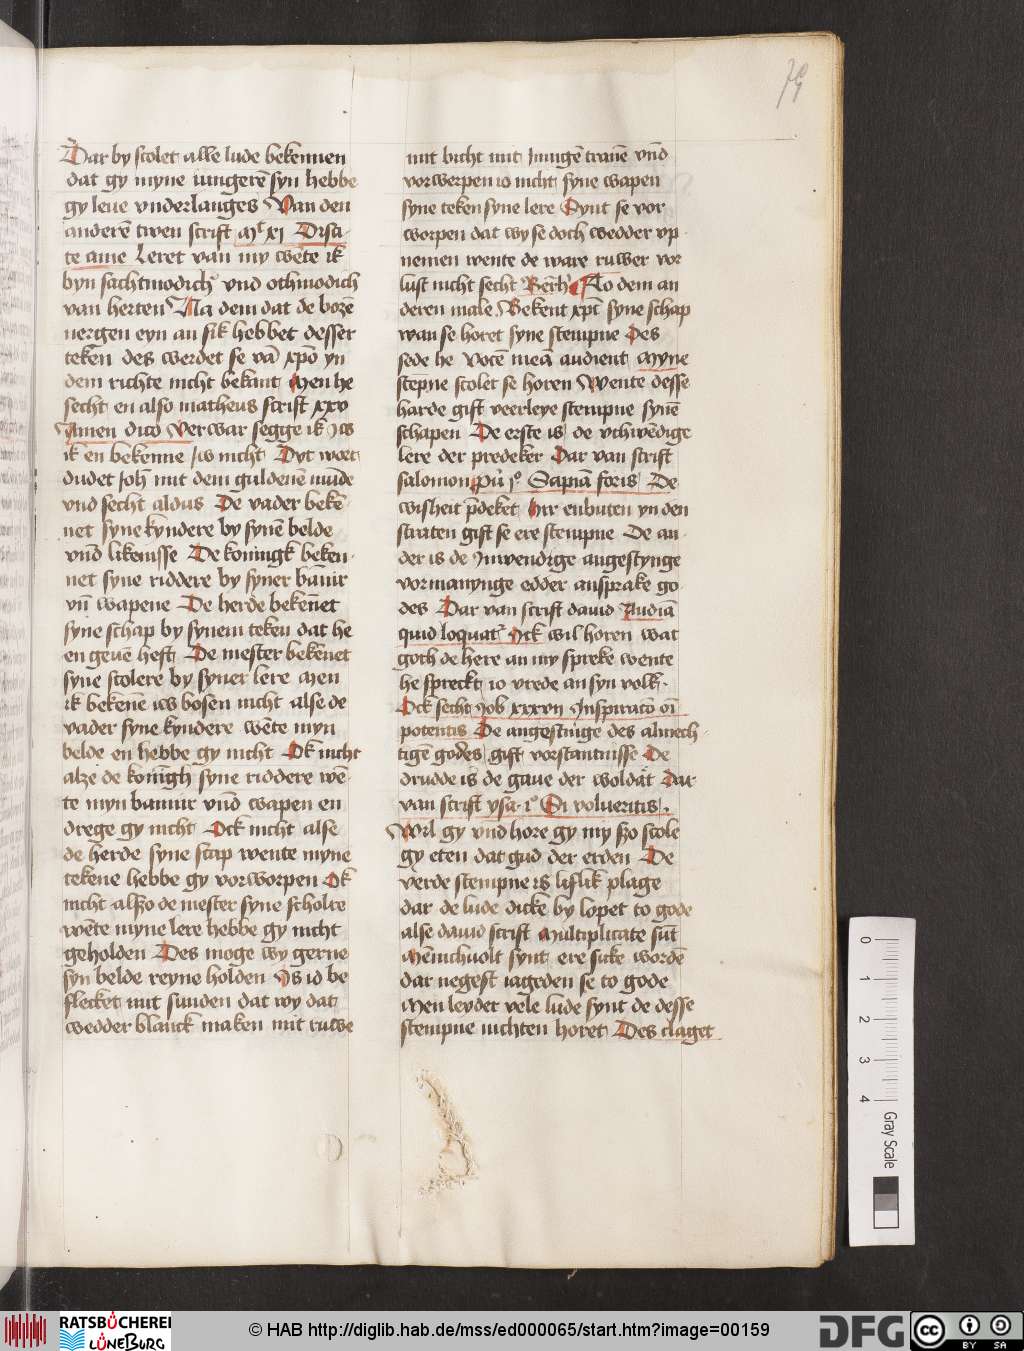 79
Dar by scolet alle lude bekennen
dat gy myne iungerē syn hebbe
gy leue vnderlanges Van den
anderē twen scrift Mt xi Disci-
te a me Leret van my wēte ik
byn sachtmodich vnd othmodich
van herten Na dem dat de bozē
nergen eyn an sik hebbet desser
teken des werdet se vā xpo yn
dem richte nicht bekant Men he
secht en also matheus scrift xxv
Amen dico Verwar segge ik iw
ik en bekenne iw nicht Dyt wort
dudet Joh mit dem guldenē mūde
vnd secht aldus De vader bekē-
net syne kyndere by synē belde
vnd likenisse De koningk beken-
net syne riddere by syner banir
vn wapene De herde bekēnet
syne schap by synem teken dat he
en geuē heft De mester bekēnet
syne scolere by syner lere Men
ik bekēne iw bosen nicht alse de
vader syne kyndere wēte myn
belde en hebbe gy nicht Ok nicht
alze de konigh syne riddere wē-
te myn bannir vnd wapen en
drege gy nicht Ock nicht alse
de herde syne scap wente myne
tekene hebbe gy vorworpen Ok
nicht alszo de mester syne scholre
wēte myne lere hebbe gy nicht
geholden Des moge wy gerne
syn belde reyne holden Is id be
flecket mit sunden dat wy dat
wedder blanck maken mit ruwe
mit bicht mit innigē tranē vnd
vorwerpen io nicht syne wapen
syne teken syne lere Synt se vor
worpen dat wy se doch wedder vp
nemen wente de ware ruwer vor
lust nicht secht Berh To dem an
deren male Bekent xpc syne schap
wan se horet syne stempne Des
sede he Vocē meā audient Myne
stepne scolet se horen Wente desse
harde gift veerleye stempne synē
schapen De erste is de vthwēdige
lere der predeker Dar van scrift
salomon pu i Sapiā foris De
wisheit pdeket Hir enbuten yn den
straten gift se ere stempne De an-
der is de inwendige angestynge
vormanynge edder ansprake go
des Dar van scrift dauid Audiā
quid loquat Ick wil horen wat
goth de here an my spreke wente
he spreckt io vrede an syn volk
Ock secht Job xxxvii Inspirato oi
potentis De angestinge des almech-
tigē godes gift vorstantnisse De
drudde is de gaue der woldat Dar
van scrift ysa i Si volueritis
Wil gy vnd hore gy my szo scole
gy eten dat gud der erden De
verde stempne is liflik plage
dar de lude dicke by lopet to gode
alse dauid scrift Multiplicate sūt
Mēnichuolt synt ere suke wordē
dar negest iageden se to gode
Men leyder vele lude synt de desse
stempne nichten horet Des claget
0
1
2
3
4
Gray Scale
RATSBÜCHEREI
LÜNEBURG
© HAB http://diglib.hab.de/mss/ed000065/start.htm?image=00159
DFG
cc
BY SA